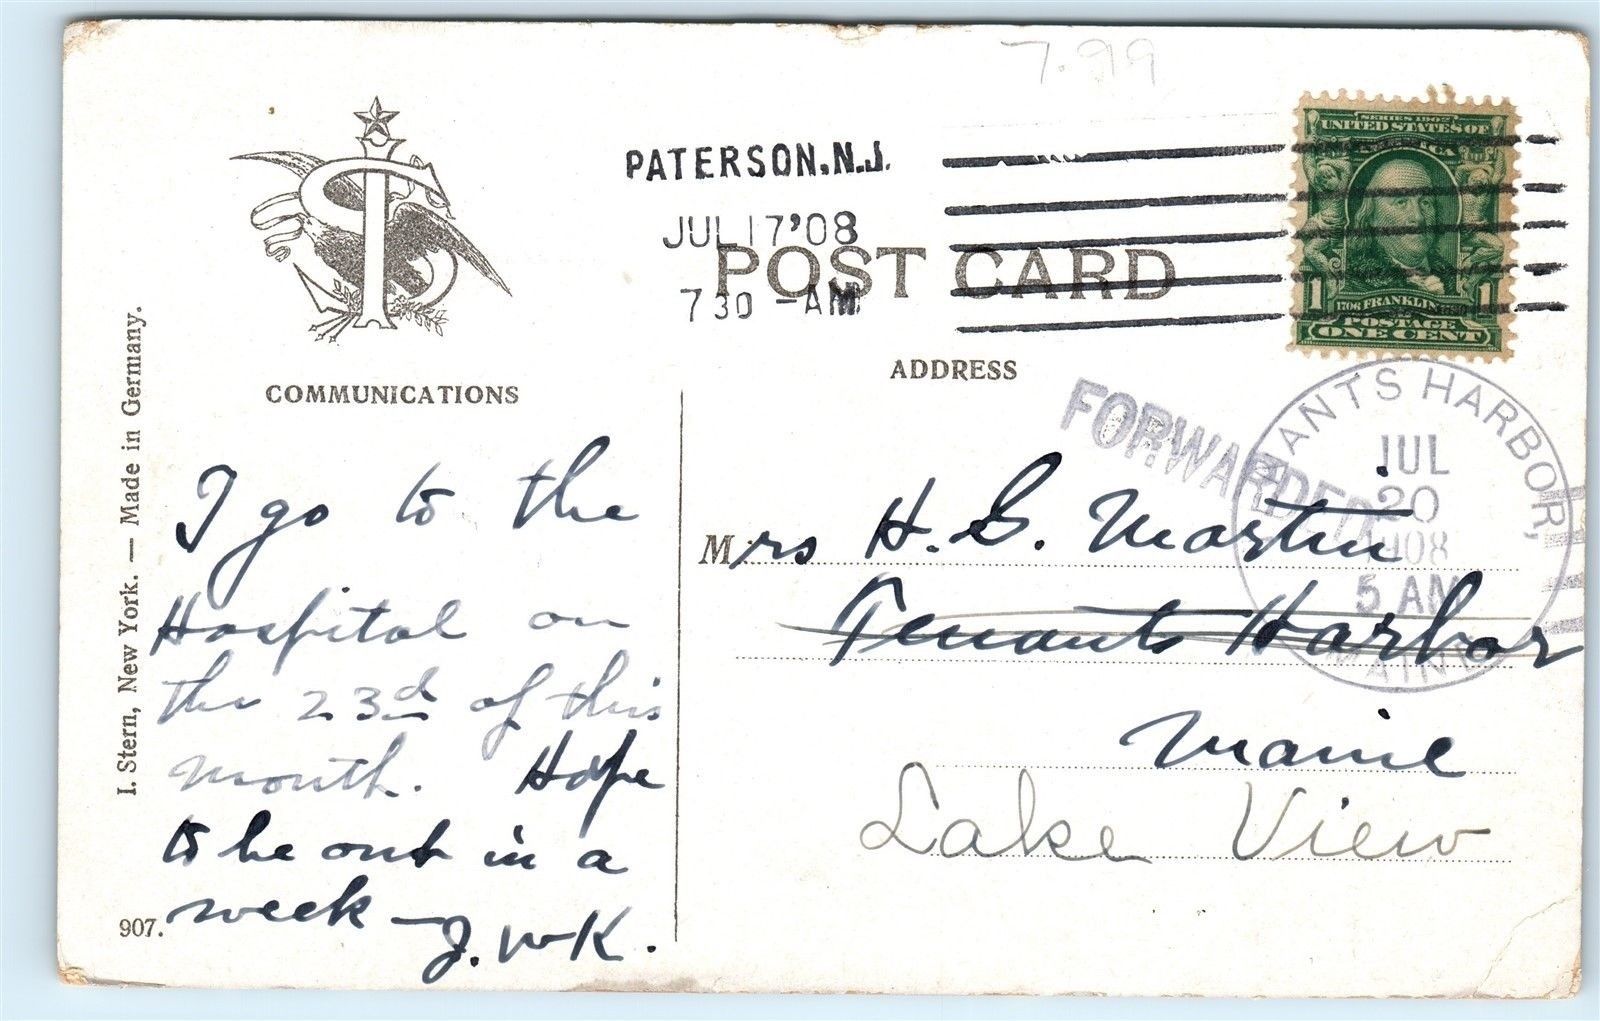 7.99
PATERSON, N.J.
JUL 17 '08
7 30 - AM
SERIES 1902
UNITED STATES OF
AMERICA
1 1706 FRANKLIN 1790 1
POSTAGE
ONE CENT
POST CARD
COMMUNICATIONS
ADDRESS
I. Stern, New York. — Made in Germany.
907.
I go to the
Hospital on
the 23rd of this
month. Hope
to be out in a
week —
J. W K.
FORWARDED
TENANTS HARBOR,
JUL
20
1908
5 AM
MAINE
Mrs H. G. Martin
Tenants Harbor
Maine
Lake View